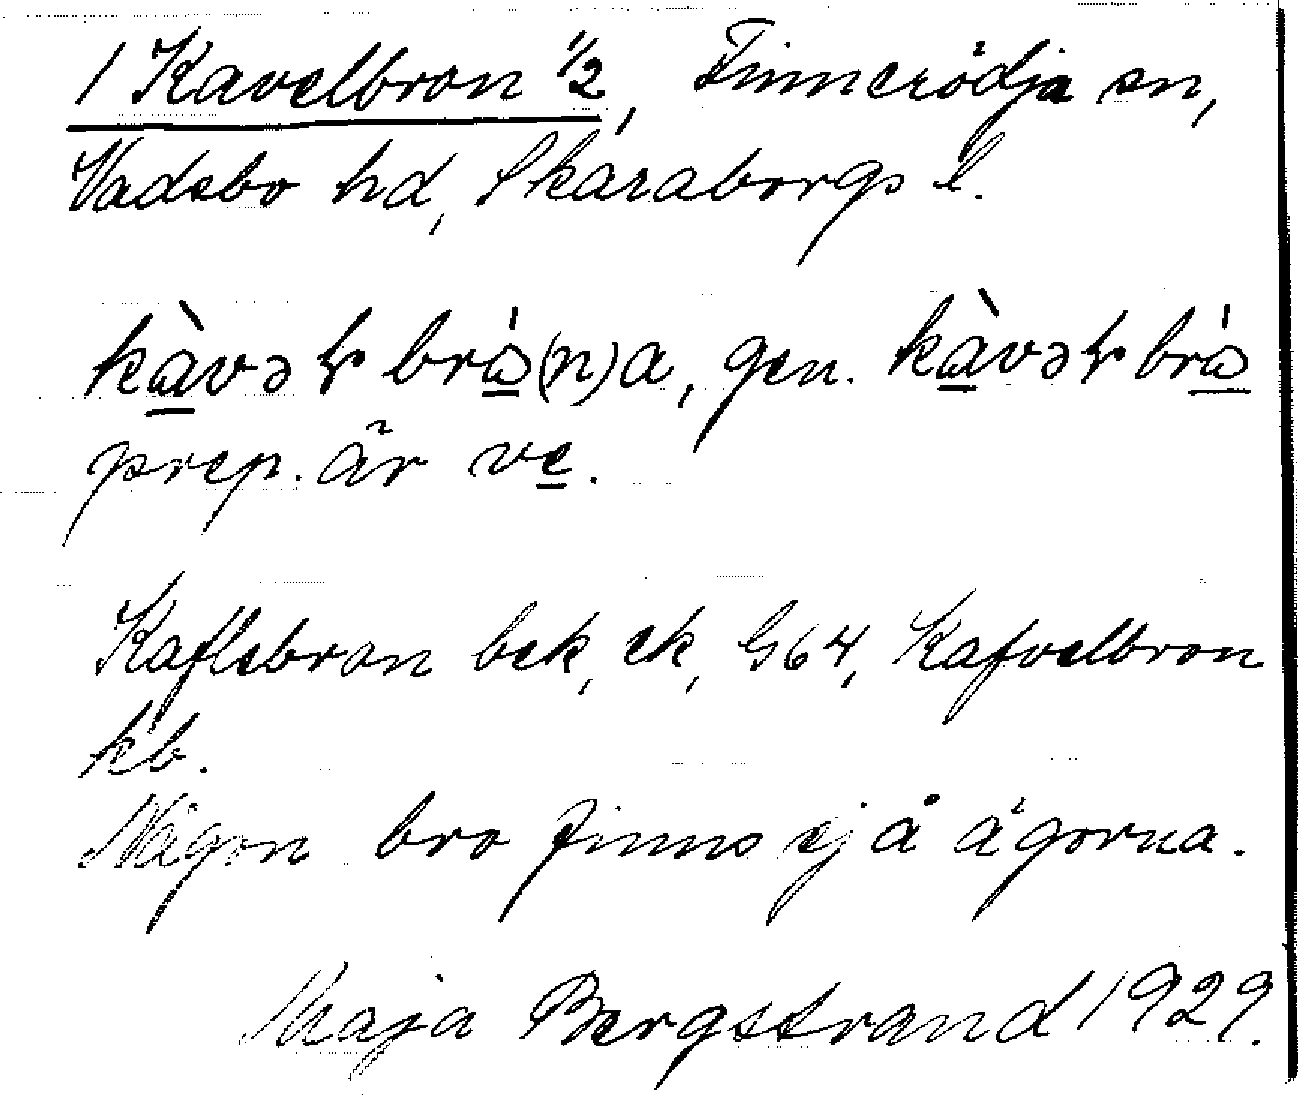 1 Kavelbron 1/2, Finnerödja sn,
Vadsbo hd, Skaraborgs l.
kàvəɫ brá(n)a, gen. kàvəɫ brás
prep. är ve.
Kaflebron bek, ek, G64, Kafvelbron
kb.
Någon bro finns ej å ägorna.
Maja Bergstrand 1929.